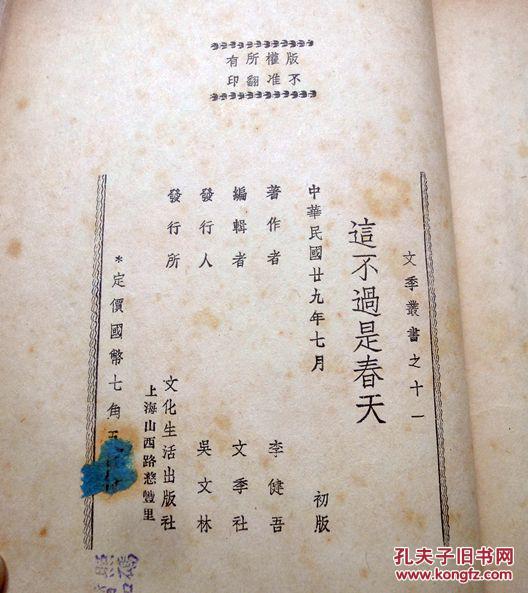 版權所有
不准翻印
文季叢書之十一
這不過是春天
中華民國廿九年七月 初版
著作者 李健吾
編輯者 文季社
發行人 吳文林
發行所 文化生活出版社
上海山西路慈豐里
*定價國幣七角五
孔夫子旧书网
kongfz.com